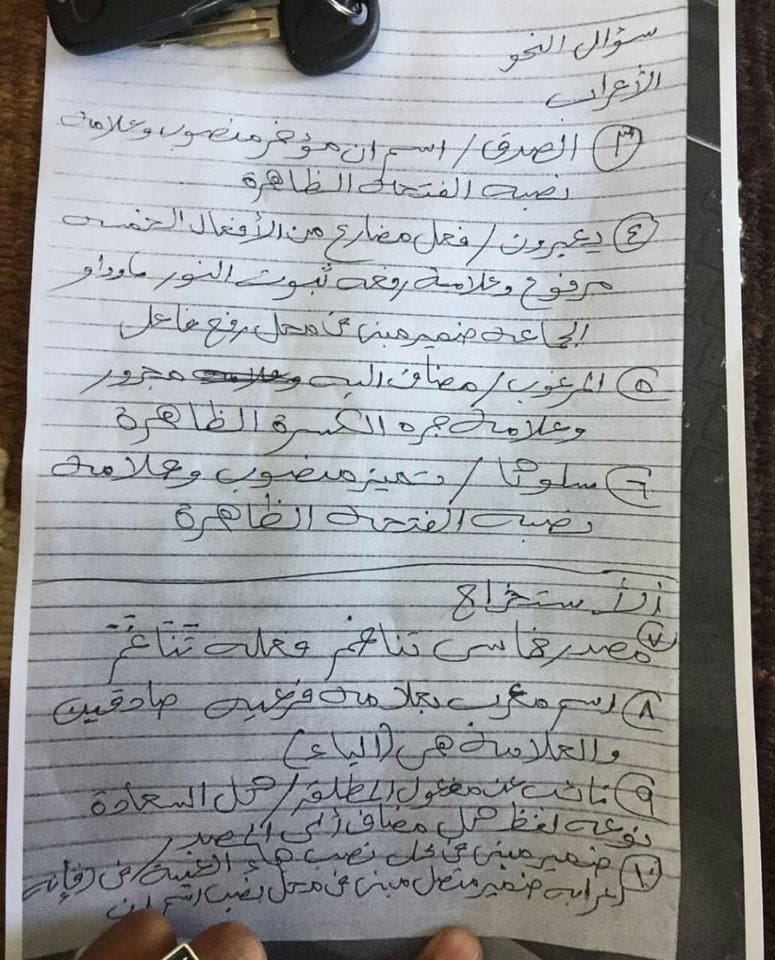 سؤال النحو
الأعراب
٣ الصدق / اسم ان مؤخر منصوب وعلامة
نصبه الفتحة الظاهرة
٤ يعبرون / فعل مضارع من الأفعال الخمسة
مرفوع وعلامة رفعه ثبوت النور ماوداو
الجماعة ضمير مبني في محل رفع فاعل
٥ المرغوب / مضاف اليه وعلامة مجرور
وعلامة جره الكسرة الظاهرة
٦ سلوكا / تميز منصوب وعلامة
نصبه الفتحة الظاهرة
الأستخراج
٧ مصدر خماسي تناغم وفعله تَنَاغَمَ
٨ اسم معرب بعلامة فرعية صادقين
والعلامة هي (الياء)
٩ نائب عن مفعول المطلق / كل السعادة
نوعه لفظ كل مضاف إلى المصدر
١٠ ضمير مبني في محل نصب هاء الغيبة / في فإنه
إعرابه ضمير متصل مبني في محل نصب اسم ان